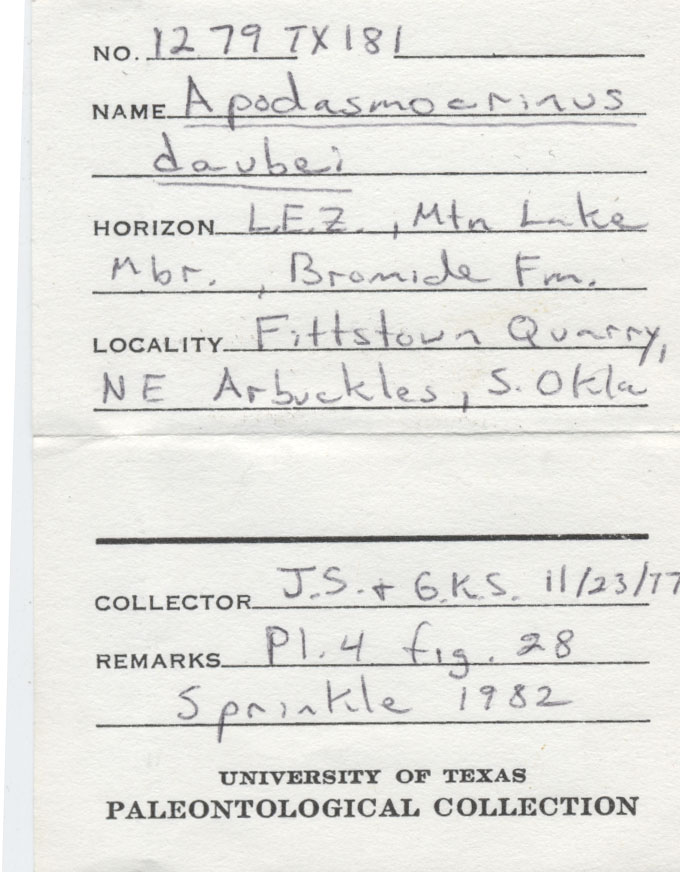 NO. 1279 TX 181
NAME Apodasmocrinus
daubei
HORIZON L.E.Z., Mtn Lake
Mbr., Bromide Fm.
LOCALITY Fittstown Quarry,
NE Arbuckles, S. Okla
COLLECTOR J.S. + G.K.S. 11/23/77
REMARKS Pl. 4 fig. 28
Sprinkle 1982
UNIVERSITY OF TEXAS
PALEONTOLOGICAL COLLECTION